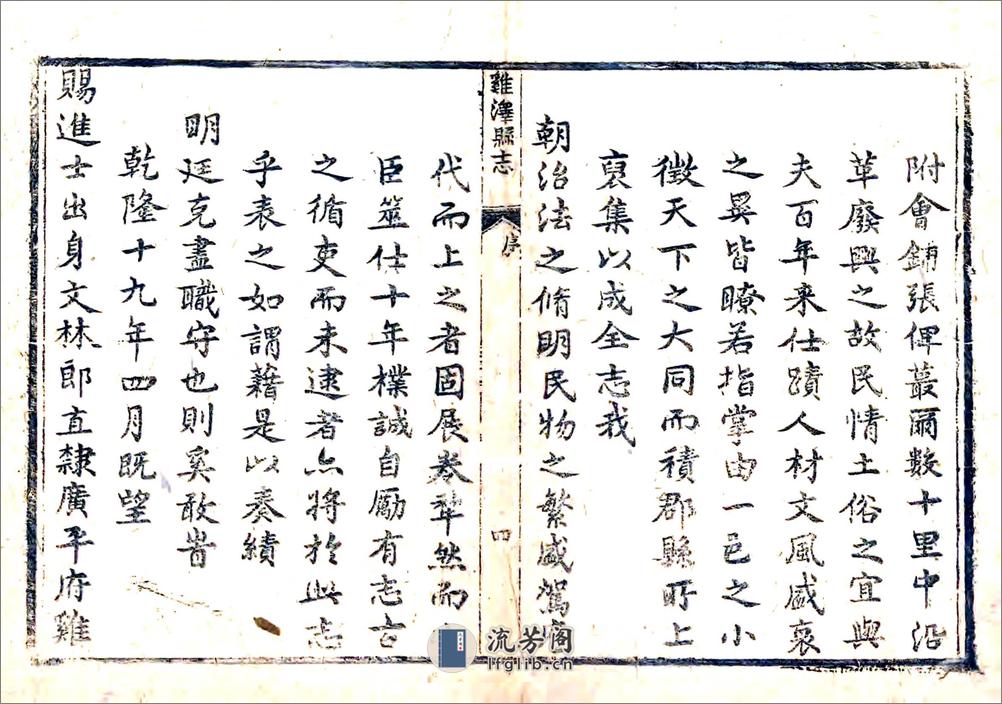 附會鋪張俾蕞爾數十里中沿
革廢興之故民情土俗之宜與
夫百年來仕蹟人材文風盛衰
之異皆瞭若指掌由一邑之小
徵天下之大同而積郡縣所上
裒集以成全志我
朝治法之脩明民物之繁盛駕
雞澤縣志
序
四
代而上之者固展卷犂然而
臣筮仕十年樸誠自勵有志古
之循吏而未逮者亦將於此志
乎表之如謂藉是以奏績
明廷克盡職守也則奚敢旹
乾隆十九年四月既望
賜進士出身文林郎直隸廣平府雞
流芳阁
lfglib.cn